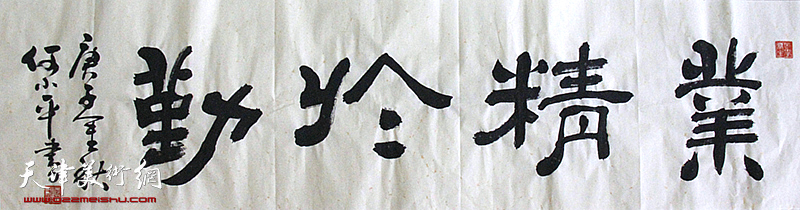 業精於勤
庚子金秋
何小平書
天津美術網
www.022meishu.com